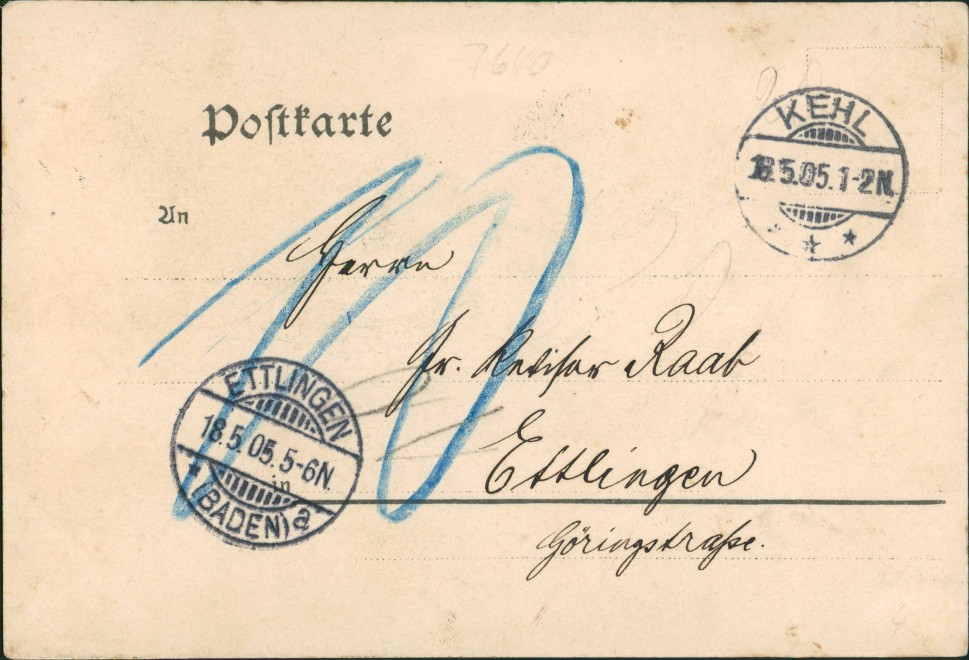 7640
Postkarte
KEHL
18.5.05.1-2N.
An
10
Herrn
Fr. Revisor Raab
ETTLINGEN
18.5.05.5-6N.
(BADEN) a
in
Ettlingen
Göringstraße.